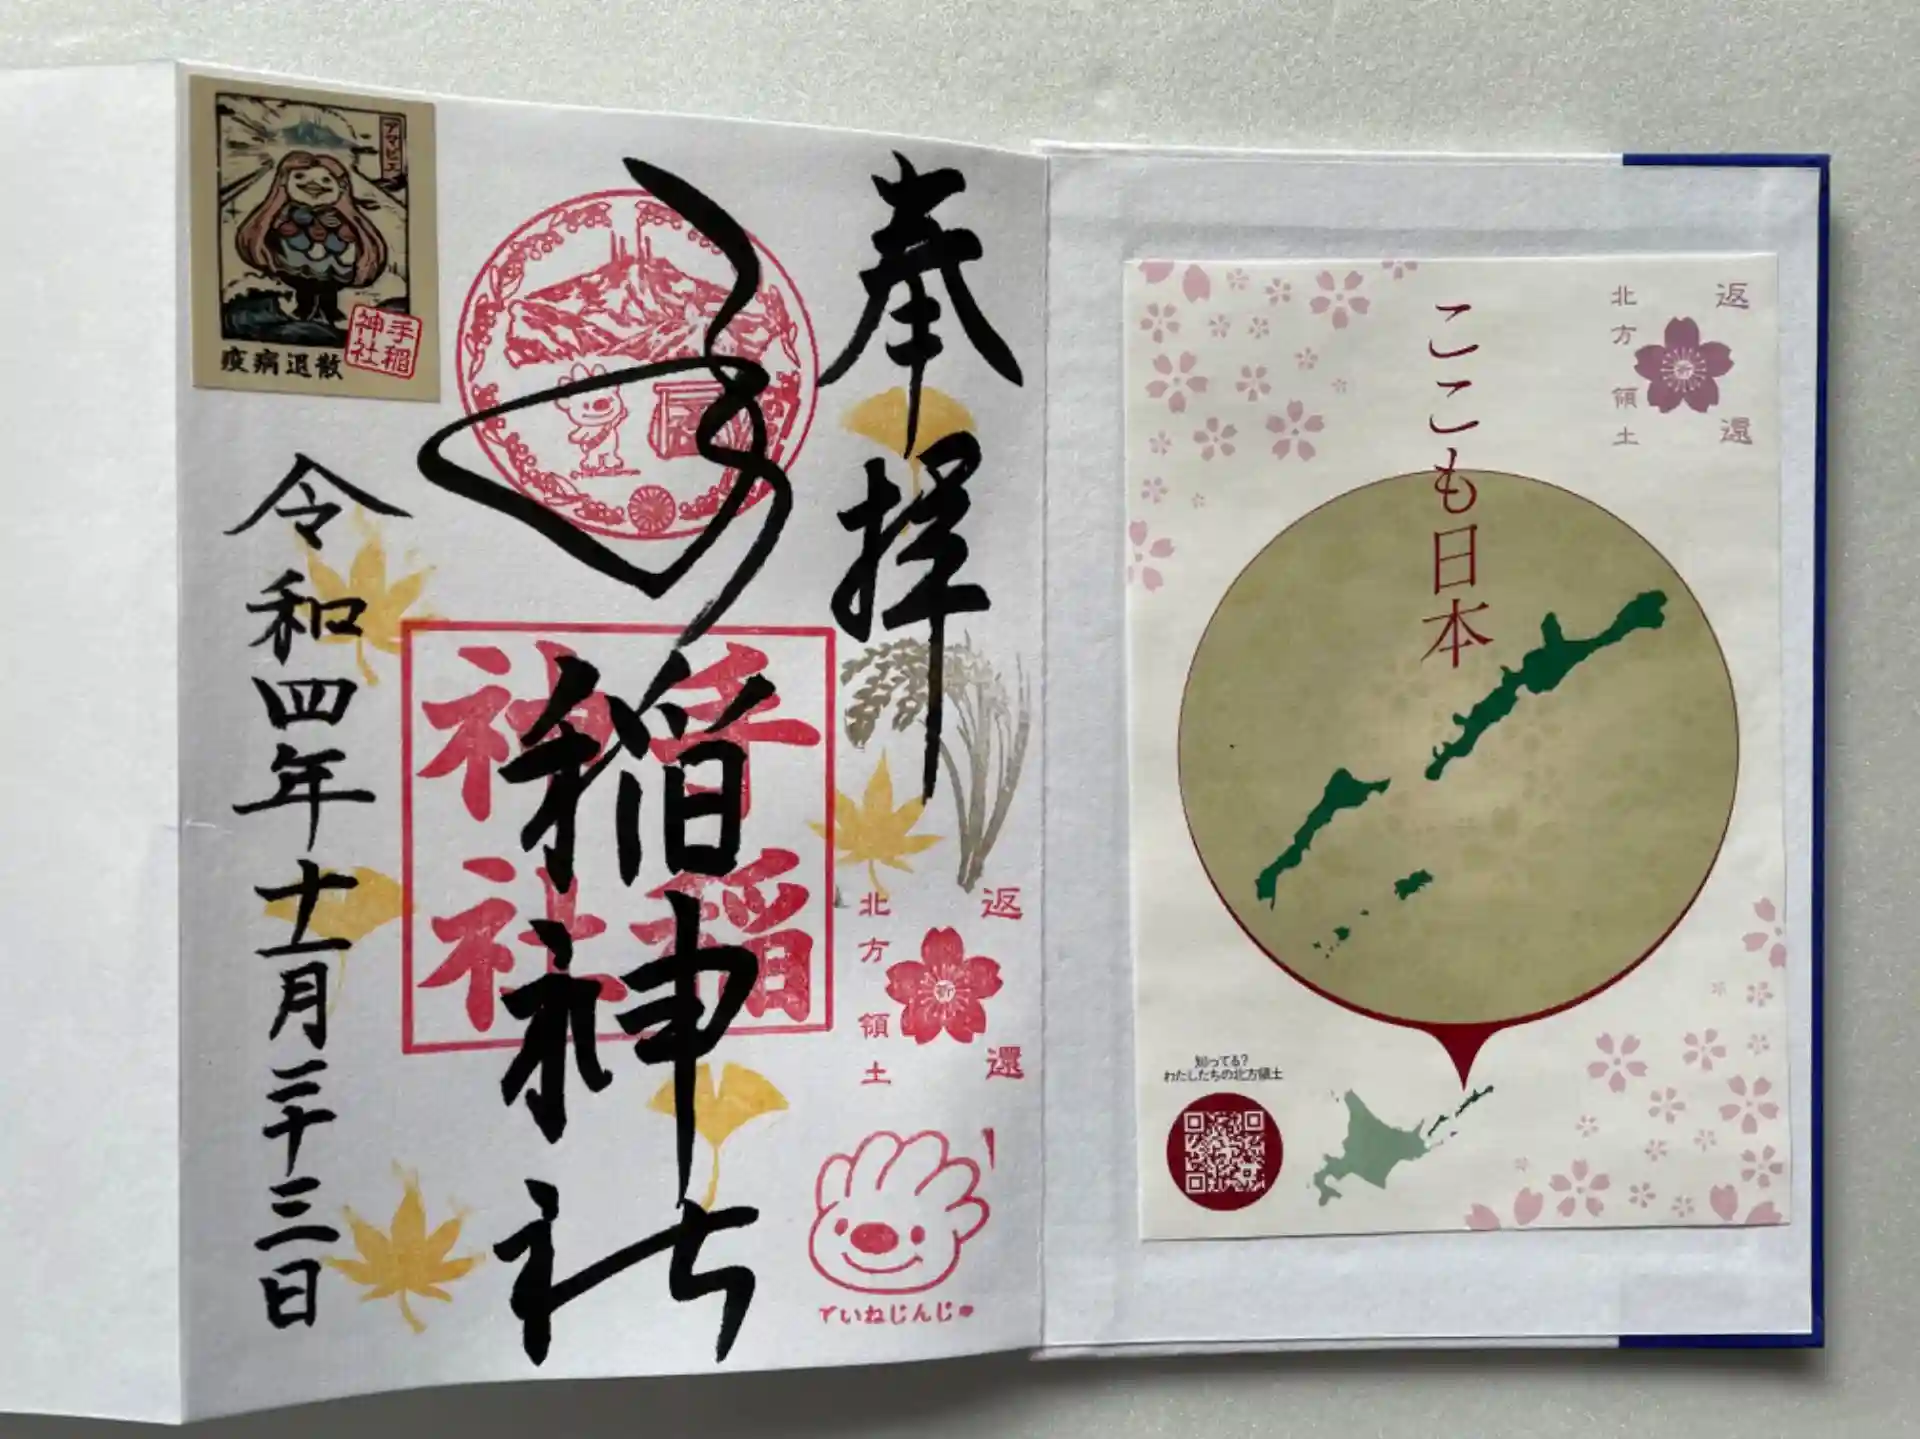 ここも日本
返還
北方領土
知ってる?
わたしたちの北方領土
奉拝
返還
祈
北方領土
ていねじんじゃ
手稲神社
手稲
神社
令和四年十一月二十三日
アマビエ
疫病退散
手稲
神社